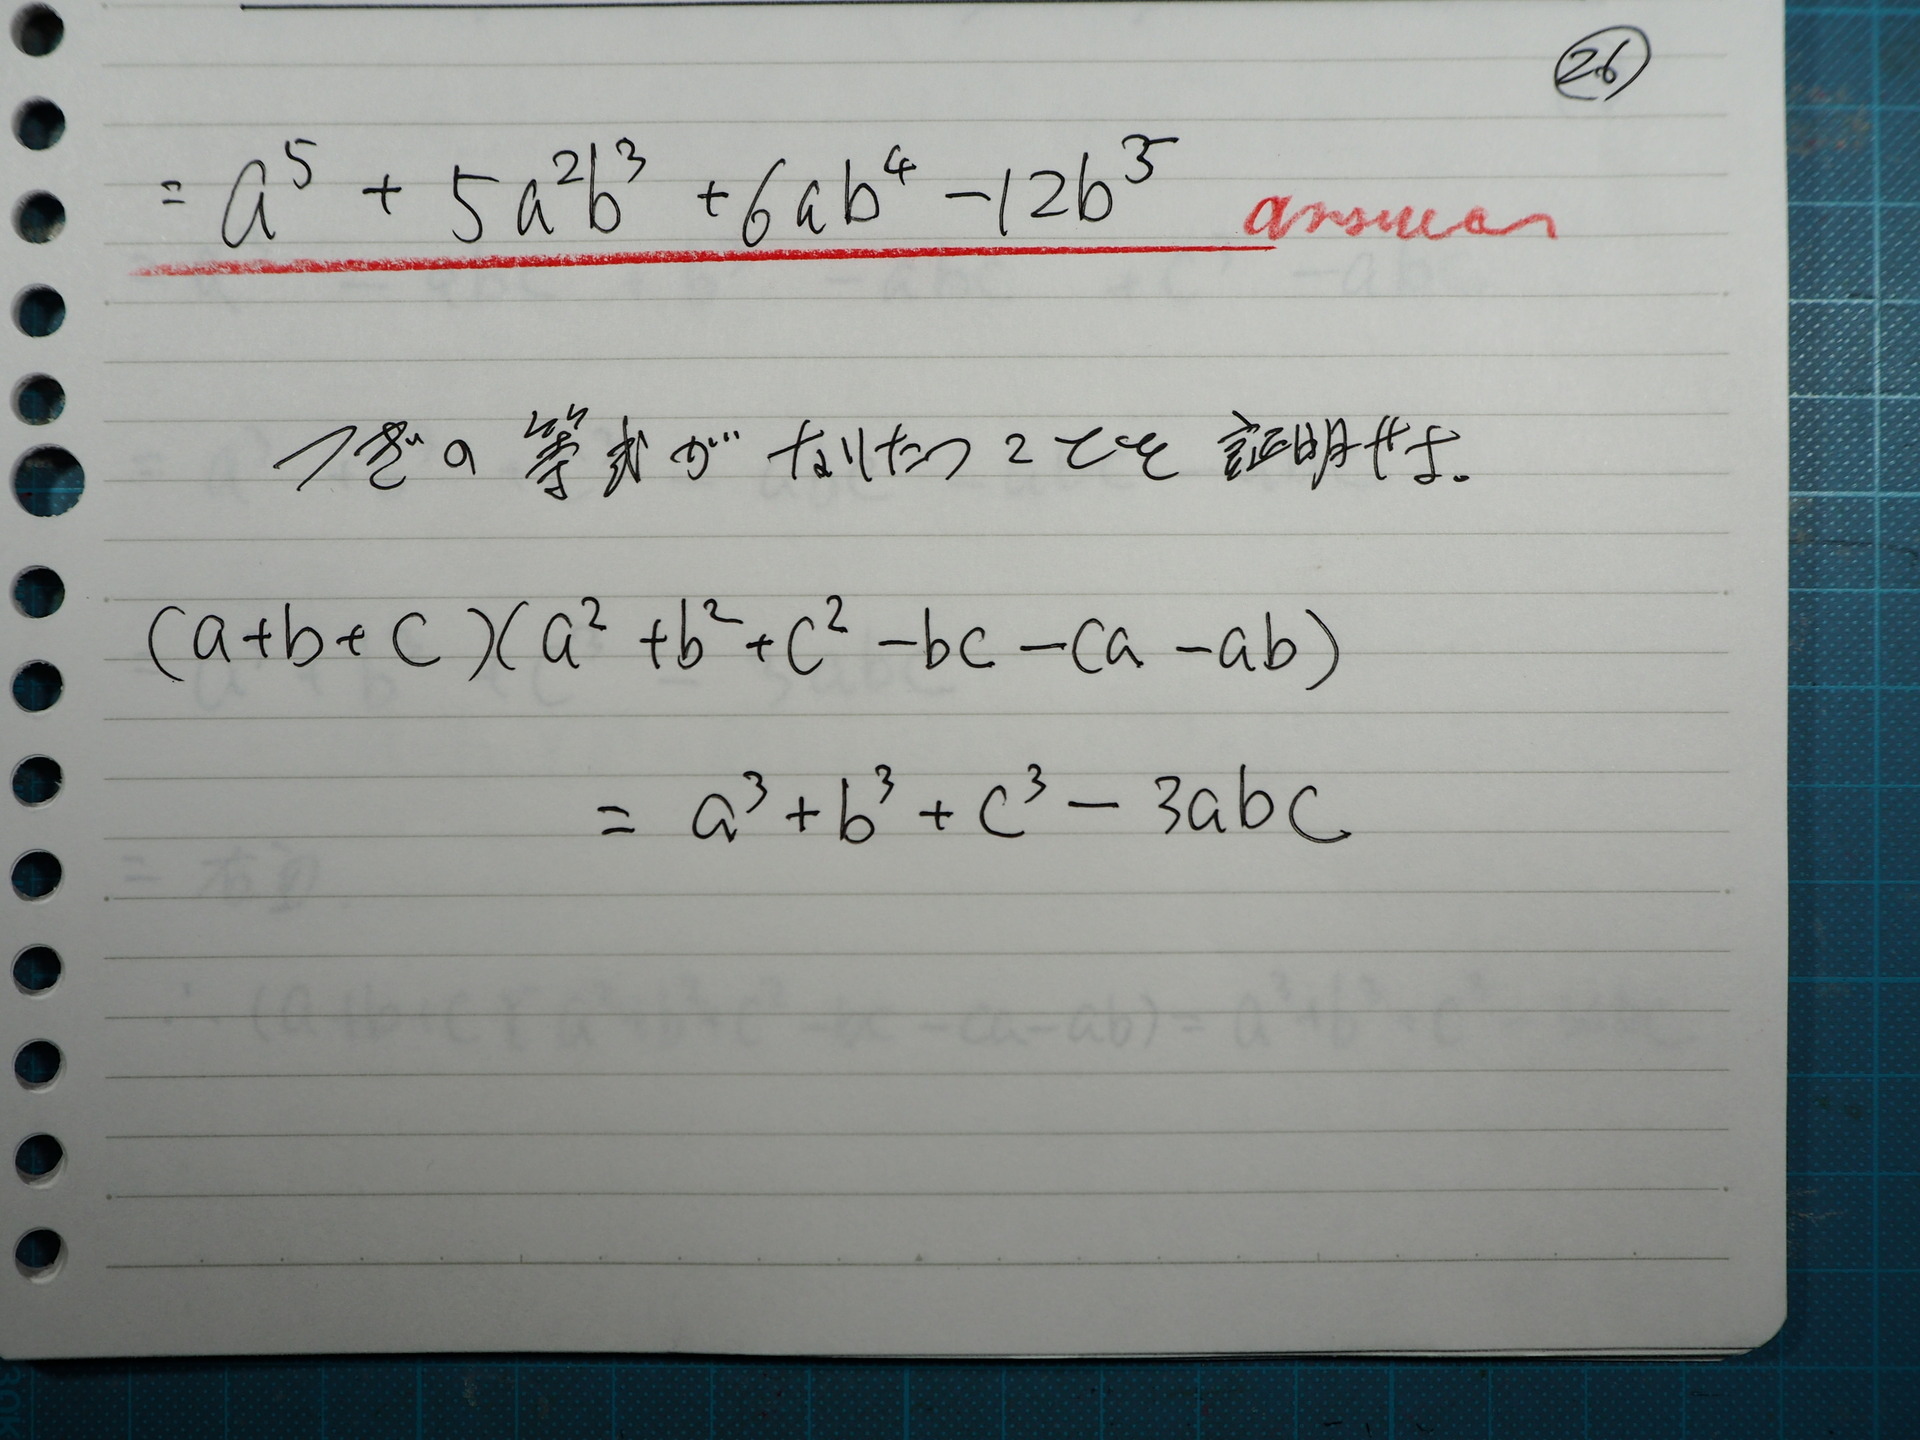 ㉖
= a⁵ + 5a²b³ + 6ab⁴ - 12b⁵ answer
つぎの等式がなりたつことを証明せよ。
(a+b+c)(a²+b²+c²-bc-ca-ab)
= a³+b³+c³-3abc